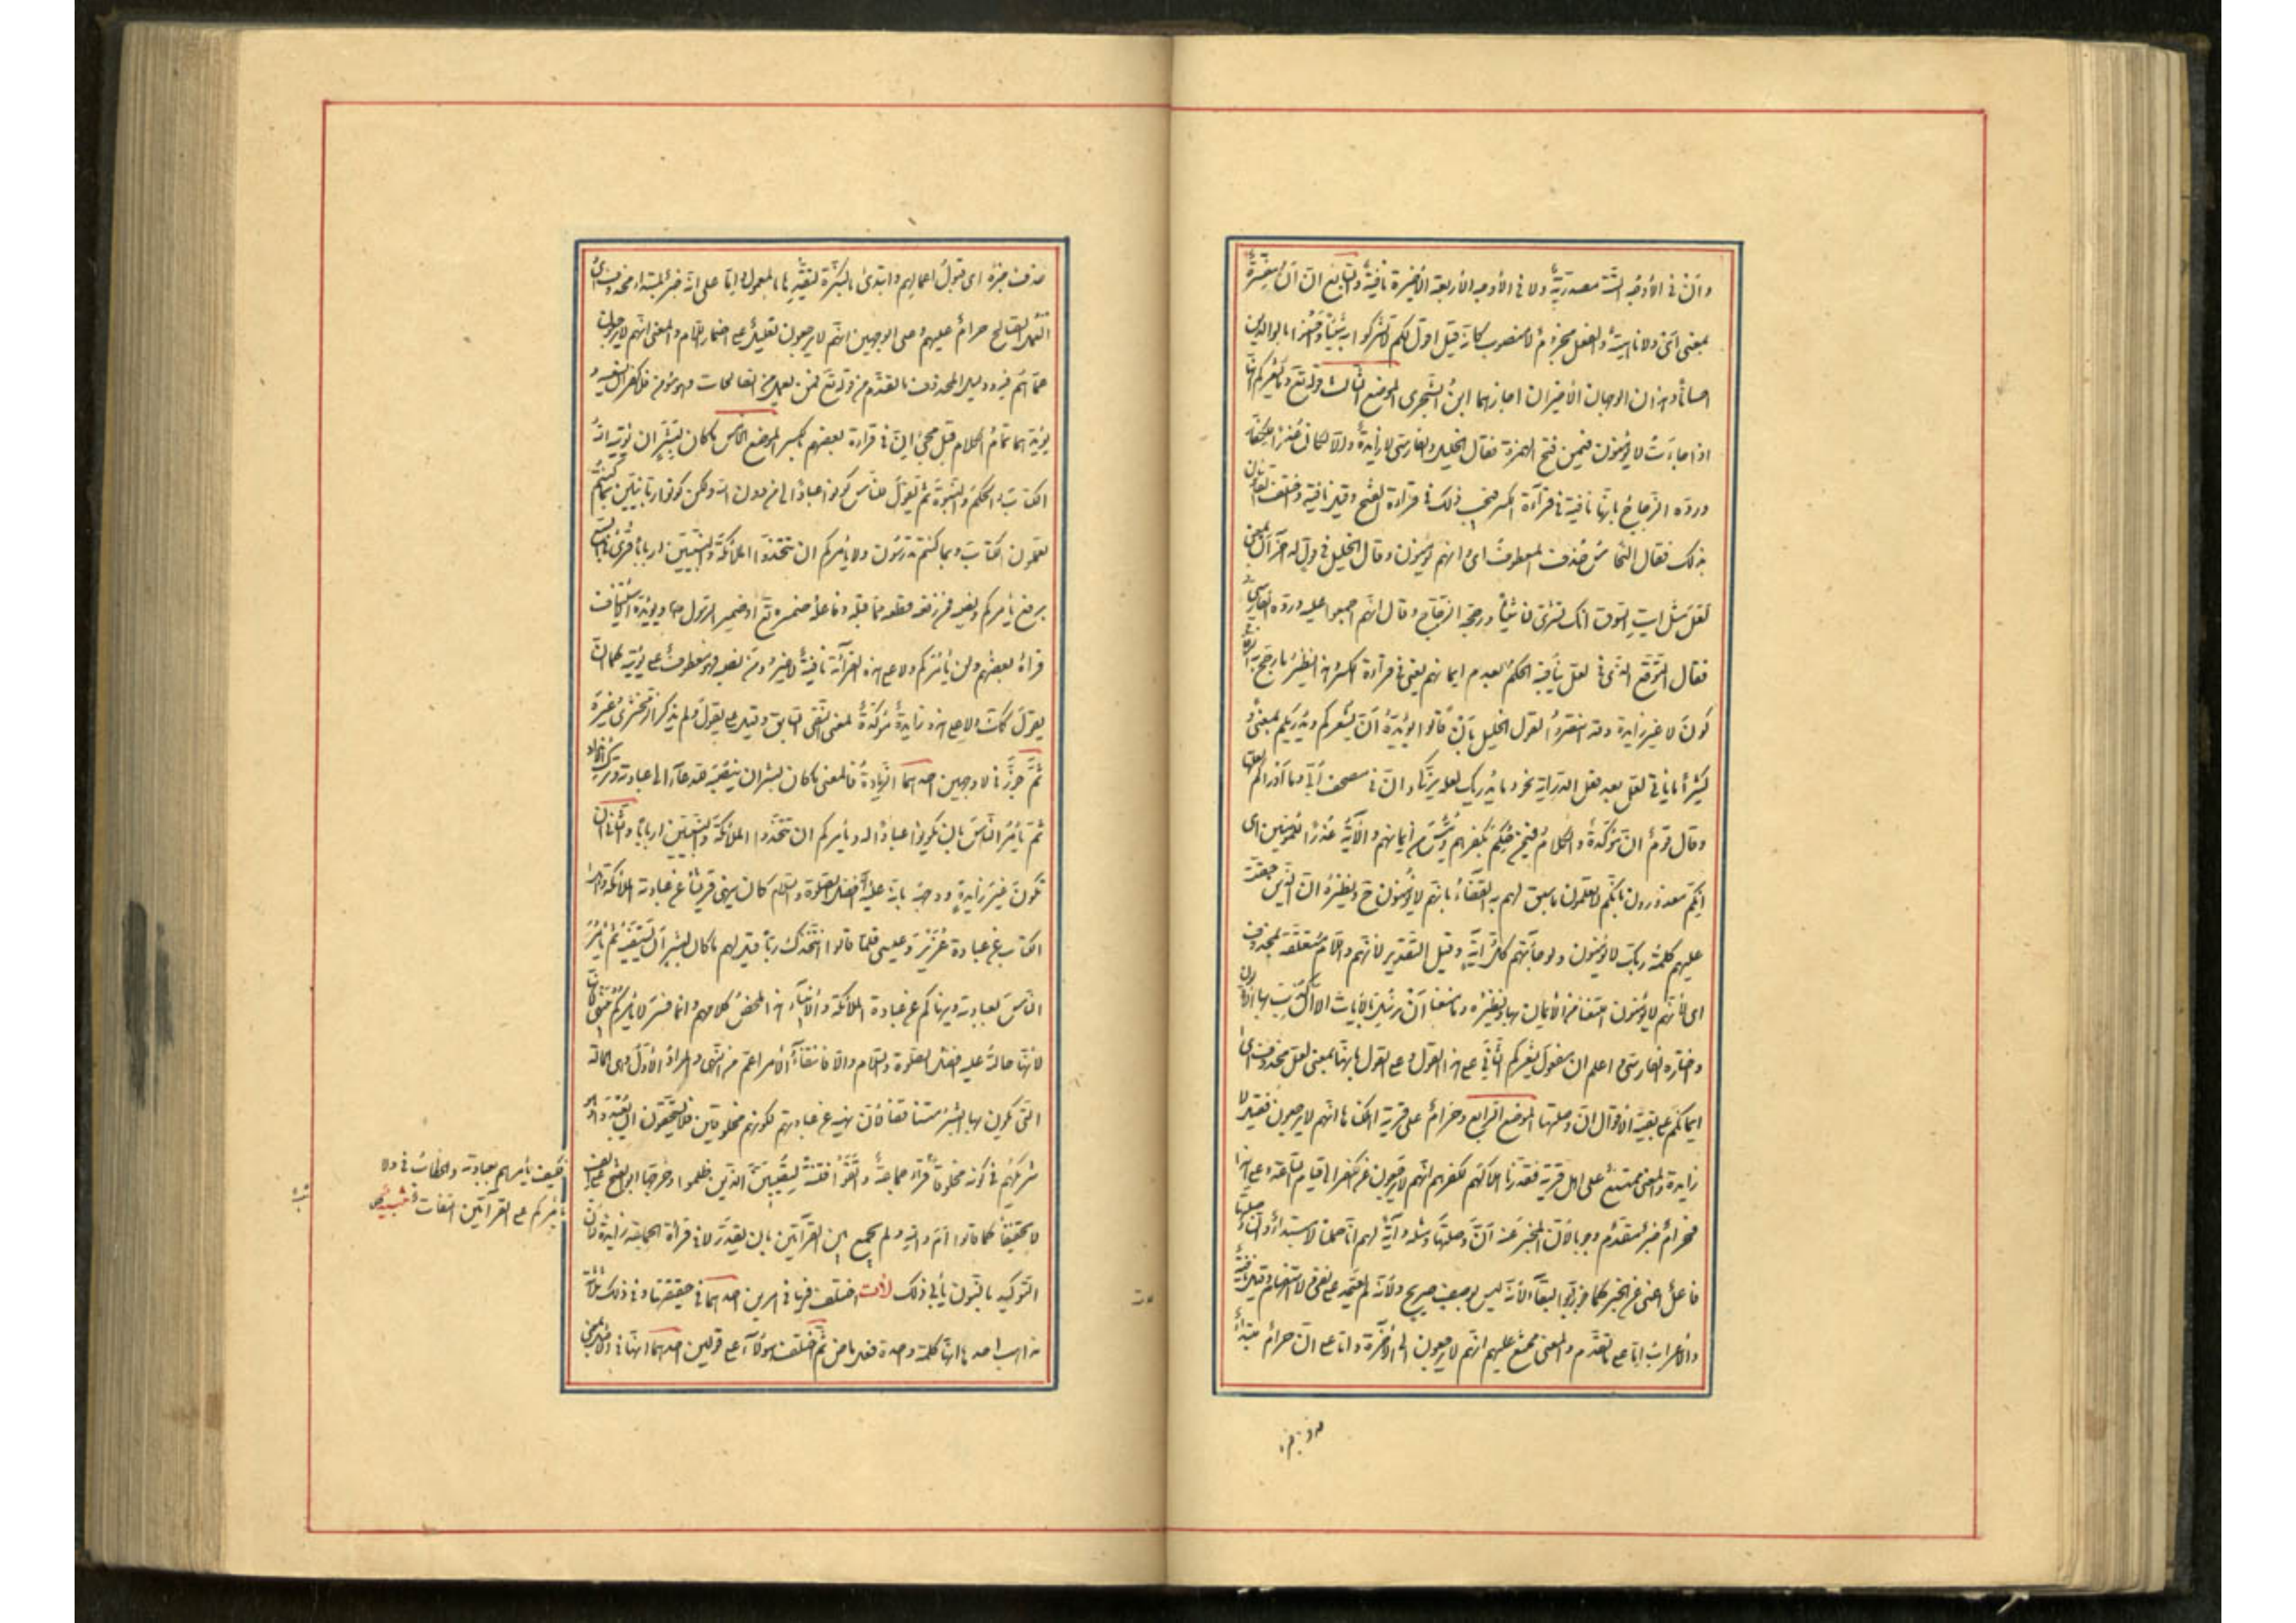 وأن في الأوجه الستة مصدرية ولا في الأوجه الأربعة الأخيرة نافية والسابع ان أن مفسرة
بمعنى أي ولا ناهية والفعل مجزوم لا منصوب كأنه قيل اقول لكم لا تشركوا به شيئا وأحسنوا بالوالدين
احسانا وهذان الوجهان الأخيران اجازهما ابن الشجري الموضع الثالث قوله تع وما يشعركم انها
اذا جاءت لا يؤمنون فيمن فتح الهمزة فقال الخليل والفارسي لا زايدة والا لكان عذرا للكفار
ورده الزجاج بانها نافية في قراءة الكسر فيجب ذلك في قراءة الفتح وقيل نافية واختلف القائلون
بذلك فقال النحاس حذف المعطوف اى او انهم يؤمنون وقال الخليل في قول له آخر أن بمعنى
لعل مثل ايت السوق انك تشترى لنا شيئا ورجحه الزجاج وقال انهم اجمعوا عليه ورده الفارسي
فقال التوقع الذى في لعل ينافيه الحكم بعدم ايمانهم يعنى في قراءة الكسر وهذا نظير ما رجح به الزجاج
كون لا غير زايدة وقد انتصروا لقول الخليل بأن قالوا يؤيده أن يشعركم ويدريكم بمعنى و
كثيرا ما يأتي لعل بعد فعل الدراية نحو وما يدريك لعله يزكى وان في مصحف أبي وما أدراكم لعلها
وقال قوم ان مؤكدة والكلام فيمن حكم بكفرهم ويئس من ايمانهم والآية عذر للمؤمنين اى
انكم معذورون لانكم لا تعلمون ما سبق لهم به القضاء بانهم لا يؤمنون ح ونظيره ان الذين حقت
عليهم كلمة ربك لا يؤمنون ولو جاءتهم كل آية وقيل التقدير لانهم واللام متعلقة بمحذوف
اى لانهم لا يؤمنون امتنعنا من الاتيان بها ونظيره وما منعنا أن نرسل بالآيات الا أن كذب بها الأولون
واختاره الفارسي واعلم ان مفعول يشعركم الثاني على هذا القول وعلى القول بانها بمعنى لعل محذوف اى
ايمانكم على بقية الاقوال ان وصلتها الموضع الرابع وحرام على قرية اهلكناها انهم لا يرجعون فقيل لا
زايدة والمعنى ممتنع على اهل قرية قدرنا اهلاكهم لكفرهم انهم لا يرجعون عن الكفر الى قيام الساعة وعلى هذا
فحرام خبر مقدم وجوبا لان المخبر عنه أن وصلتها ومثله وآية لهم انا حملنا لا مبتداء وأن وصلتها
فاعل اغنى عن الخبر كما جوز ابو البقاء لانه ليس بوصف صريح ولانه لم يعتمد على نفى ولا استفهام وقيل نافية
والاعراب اما على ما تقدم والمعنى ممتنع عليهم انهم لا يرجعون الى الآخرة واما على ان حرام مبتدأ
حذف خبره اى قبول اعمالهم وابتدئ بالنكرة لتقييدها بالمعمول واما على انه خبر لمبتداء محذوف اى
العمل الصالح حرام عليهم وعلى الوجهين انهم لا يرجعون تعليل على اضمار اللام والمعنى انهم لا يرجعون
عما هم فيه ودليل المحذوف ما تقدم من قوله تع فمن يعمل من الصالحات وهو مؤمن فلا كفران لسعيه و
يؤيدهما تمام الكلام قبل مجئ ان في قراءة بعضهم بالكسر الموضع الخامس ما كان لبشر ان يؤتيه الله
الكتاب والحكم والنبوة ثم يقول للناس كونوا عبادا لي من دون الله ولكن كونوا ربانيين بما كنتم
تعلمون الكتاب وبما كنتم تدرسون ولا يأمركم ان تتخذوا الملائكة والنبيين اربابا قرئ في السبع
برفع يأمركم ونصبه فمن رفعه قطعه عما قبله وفاعله ضميره تع او ضمير الرسول ويؤيد الاستيناف
قراءة بعضهم ولن يأمركم ولا على هذه القراءة نافية لا غير ومن نصبه فهو معطوف على يؤتيه كما ان
يقول كك ولا على هذه زايدة مؤكدة لمعنى النفى السابق وقيل على يقول ولم يذكر الزمخشرى غيره
ثم جوز في لا وجهين احدهما الزيادة فالمعنى ما كان لبشر ان ينصبه الله داعيا الى عبادته وترك الانداد
ثم يأمر الناس بان يكونوا عبادا له ويأمركم ان تتخذوا الملائكة والنبيين اربابا والثاني ان
تكون غير زايدة ووجهه بانه عليه افضل الصلوة والسلام كان ينهى قريشا عن عبادة الملائكة واهل
الكتاب عن عبادة عزير وعيسى فلما قالوا انتخذك ربا قيل لهم ما كان لبشر أن يستنبئه ثم يأمر
الناس بعبادته وينهاكم عن عبادة الملائكة والأنبياء هذا ملخص كلامه وانما فسر لا يأمركم بينهى
لانها حالة عليه افضل الصلوة والسلام والا فانتفاء الأمر اعم من النهى والمراد الأول وهى الحالة
التي يكون بها البشر متناقضا لأن نهيه عن عبادتهم لكونهم مخلوقين فلا يستحقون ان يعبدوا وهو
شريكهم في كونه مخلوقا قراء جماعة واتقوا فتنة لتصيبن الذين ظلموا وخرجها ابو الفتح على حذف الف
لا تخفيفا كما قالوا أم والله ولم يجمع بين القراءتين بان يقدر لا في قراءة الجماعة زايدة لان
التوكيد بالنون يأبى ذلك لات اختلف فيها في امرين احدهما في حقيقتها وفي ذلك ثلثة
مذاهب احدها انها كلمة واحدة فعل ماض ثم اختلف هؤلاء على قولين احدهما انها في الاصل بمعنى
فكيف يأمرهم بعبادته والخطاب في ولا
يأمركم على القراءتين التفات تنبيه